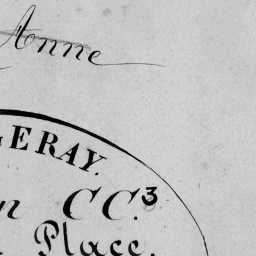 Anne
GERAY.
n CC.³
Place.